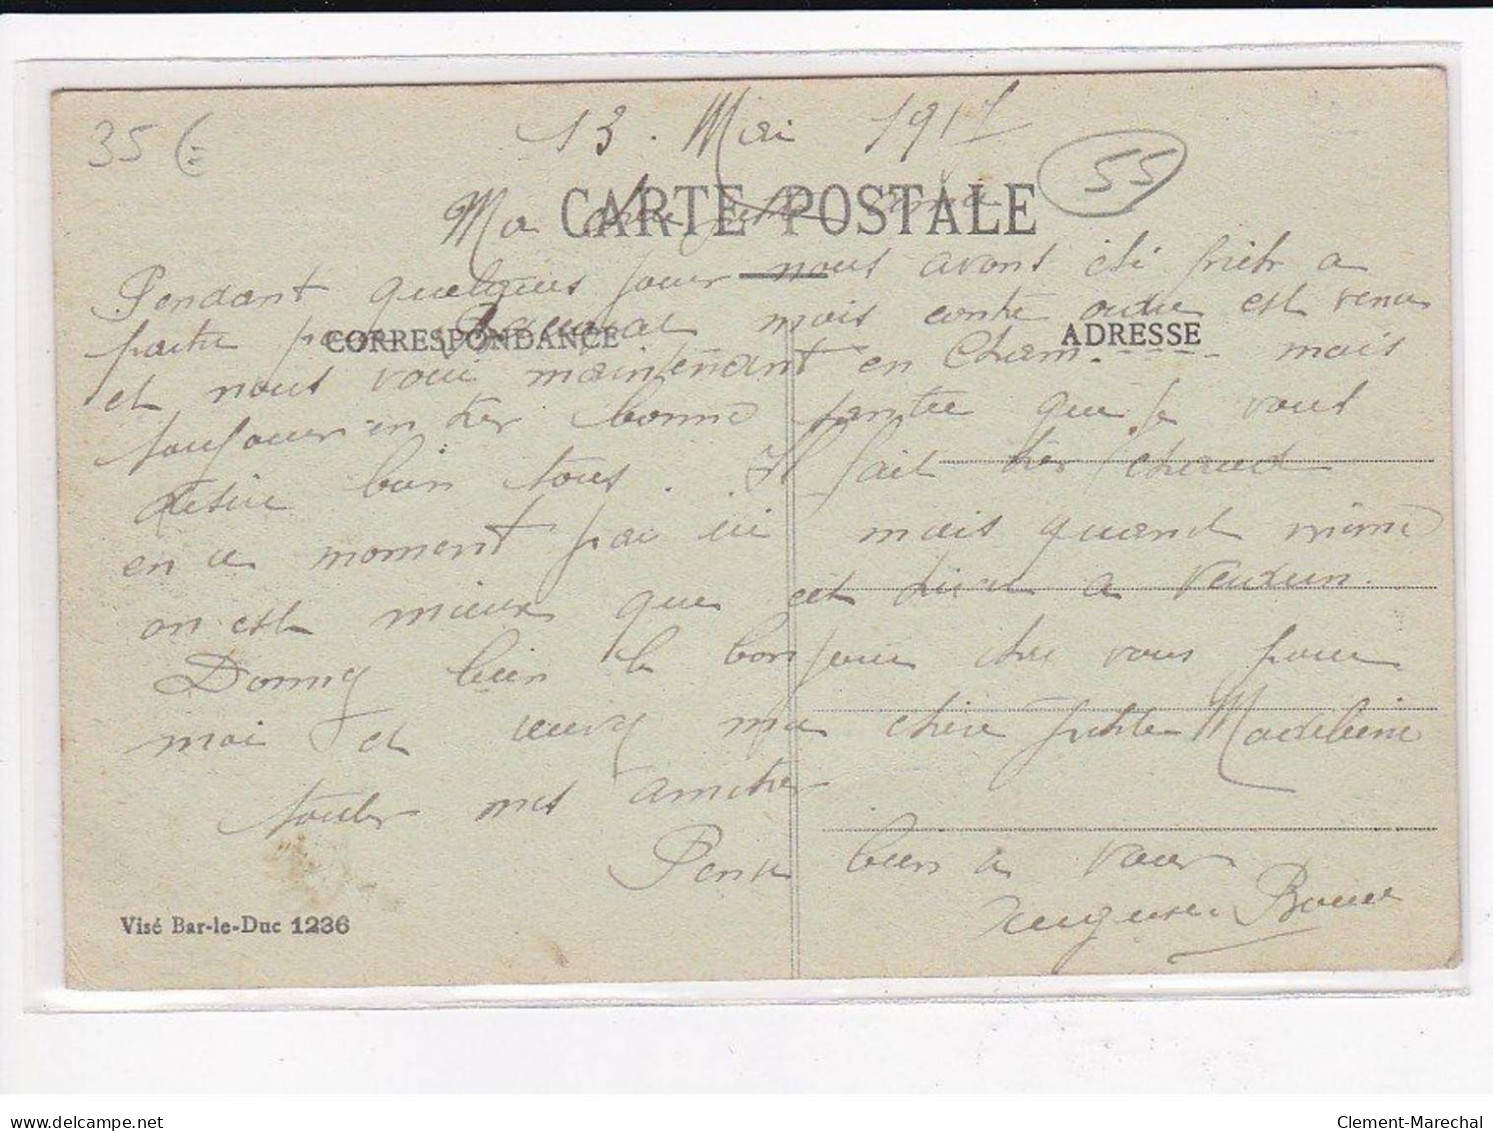 35 €
13. Mai 1917
55
CARTE POSTALE
Ma chère petite
Pendant quelques jour nous avont été prêt a
partir pour mais contre ordre est venu
CORRESPONDANCE
ADRESSE
et nous voui maintenant en Cham. mais
toujour en tres bonne santée que je vous
desire bien tous. Il fait tres chaud
en ce moment par ici mais quand même
on est mieux que cet hiver a Verdun.
Donnez bien le bonjour chez vous pour
moi et recevez ma chère petite Madeleine
toutes mes amitiés
Pense bien a vous
Visé Bar-le-Duc 1236
Clement-Marechal
www.delcampe.net